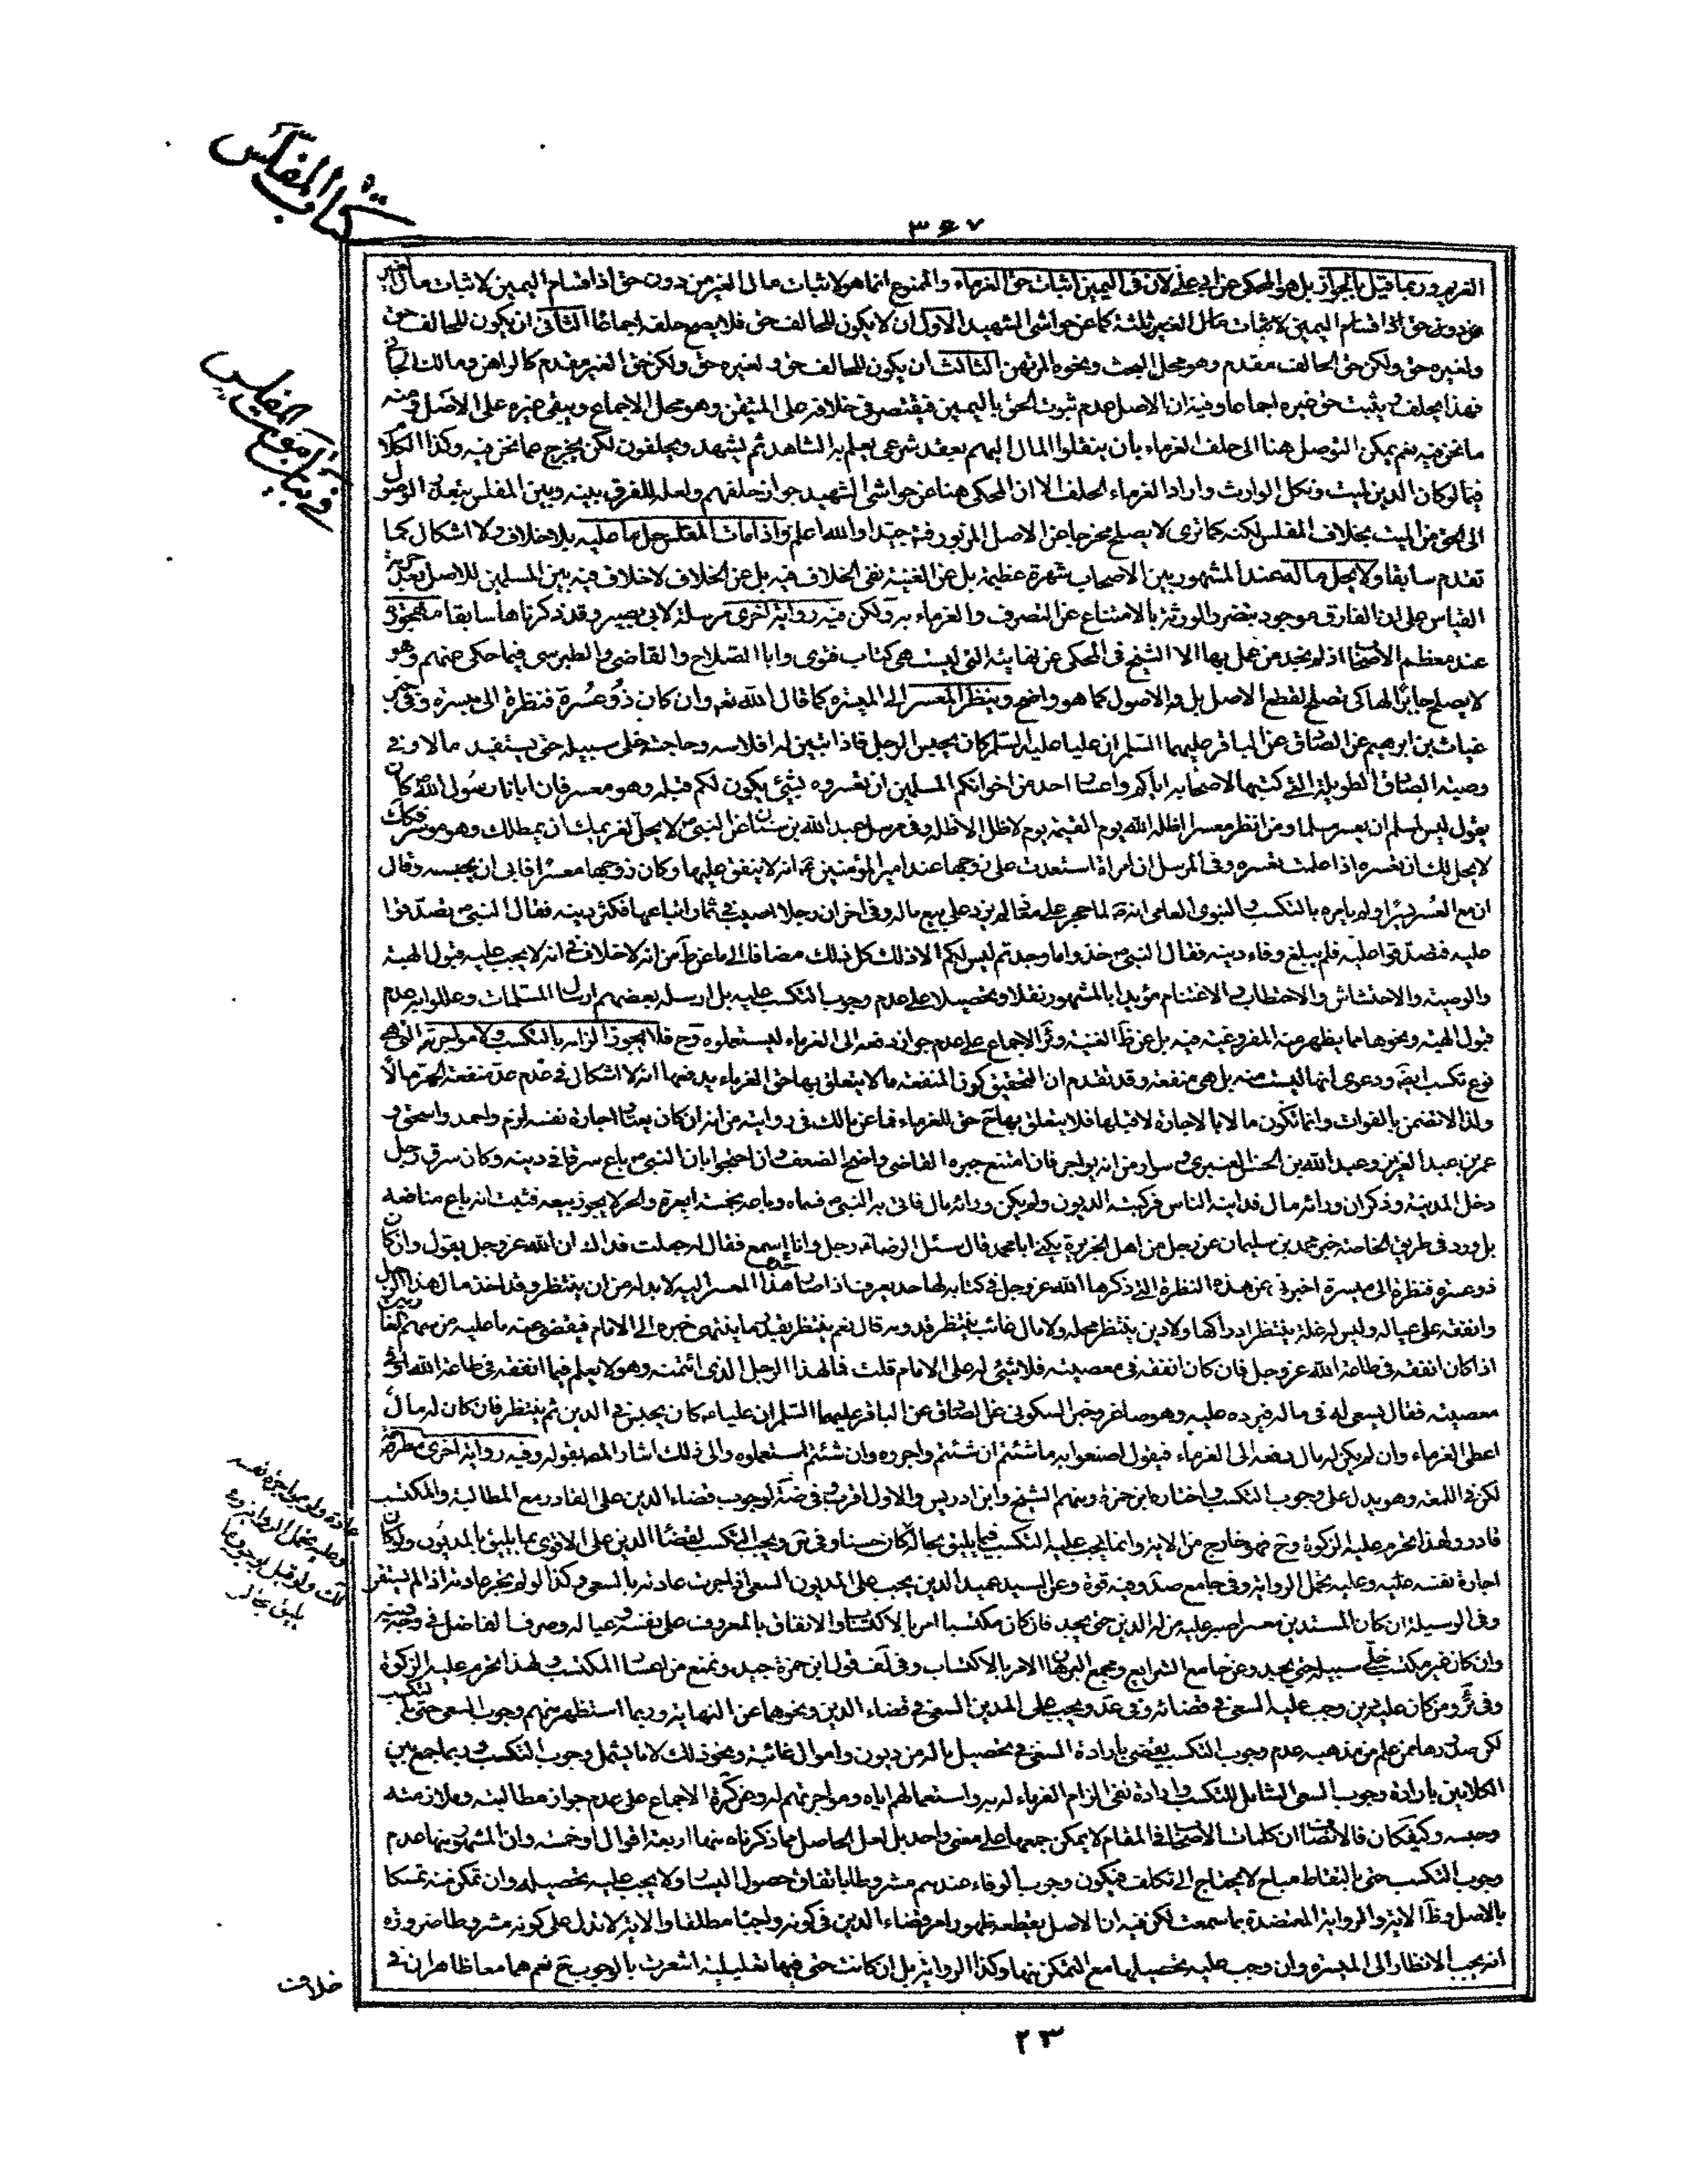 كتاب المفلس
٣٦٧
الغريم وربما قيل بالجواز بل هو المحكى عن ابى على لان فى اليمين اثبات حق الغرماء والممنوع انما هو لاثبات مال الغير من دون حق اذ اقسام اليمين لاثبات مال الغير
من دون حق اذ اقسام اليمين لاثبات مال الغير ثلثة كما عن حواشى الشهيد الاول ان لا يكون للحالف حق فلا يصح حلفه اجماعا الثانى ان يكون للحالف حق
ولغيره حق ولكن حق الحالف مقدم وهو محل البحث ونحوه المرتهن الثالث ان يكون للحالف حق ولغيره حق ولكن حق الغير مقدم كالراهن ومالك
فهذا يحلف و يثبت حق غيره اجماعا وفيه ان الاصل عدم ثبوت الحق باليمين فيقتصر فى خلافه على المتيقن وهو محل الاجماع ويبقى غيره على الاصل ومنه
ما نحن فيه نعم يمكن التوصل هنا الى حلف الغرماء بأن ينقلوا المال اليهم بعقد شرعى يعلم به الشاهد ثم يشهد ويحلفون لكن يخرج عما نحن فيه وكذا الكلام
فيما لو كان الدين لميت ونكل الوارث واراد الغرماء الحلف الا ان المحكى هنا عن حواشى الشهيد جواز حلفهم ولعله للفرق بينه وبين المفلس بتعذر الوصول
الى الحق من الميت بخلاف المفلس لكنه كما ترى لا يصلح مخرجا عن الاصل المزبور فت جيدا والله اعلم واذا مات المفلس حل ما عليه بلا خلاف ولا اشكال كما
تقدم سابقا ولا يحل ماله عند المشهور بين الاصحاب شهرة عظيمة بل عن الغنية نفى الخلاف فيه بل عن الخلاف لا خلاف فيه بين المسلمين للاصل بعد حرمة
القياس على ان الفارق موجود بتضرر الورثة بالامتناع عن التصرف والغرماء به ولكن فيه رواية اخرى مرسلة لابى بصير وقد ذكرناها سابقا مهجورة
عند معظم الاصحاب اذ لم نجد من عمل بها الا الشيخ فى المحكى عن نهايته التى ليست هى كتاب فتوى وابا الصلاح والقاضى والطبرسى فيما حكى عنهم وهو
لا يصلح جابرا لها كى تصلح لقطع الاصل بل والاصول كما هو واضح وينظر المعسر الى الميسرة كما قال الله تع وان كان ذو عسرة فنظرة الى ميسرة وفى خبر
غياث بن ابرهيم عن الصادق عن الباقر عليهما السلم ان عليا عليه السلم كان يحبس الرجل فاذا تبين له افلاسه وحاجته خلى سبيله حتى يستفيد مالا وفى
وصية الصادق الطويلة التى كتبها لاصحابه اياكم واعسار احد من اخوانكم المسلمين ان تعسروه بشئ يكون لكم قبله وهو معسر فان ابانا رسول الله ص كان
يقول ليس لمسلم ان يعسر مسلما ومن انظر معسرا اظله الله يوم القيمة يوم لا ظل الا ظله وفى مرسل عبد الله بن سنان عن النبى ص لا يحل لغريمك ان يمطلك وهو موسر فكك
لا يحل لك ان تعسره اذا علمت تعسره وفى المرسل ان امراة استعدت على زوجها عند امير المؤمنين ع انه لا ينفق عليها وكان زوجها معسرا فابى ان يحبسه وقال
ان مع العسر يسرا ولم يامره بالتكسب والنبوى العامى انه ص لما حجر على معاذ لم يزد على بيع ماله وفى اخر ان رجلا اصيب فى ثمار ابتاعها فكثر دينه فقال النبى ص تصدقوا
عليه فتصدقوا عليه فلم يبلغ وفاء دينه فقال النبى ص خذوا ما وجدتم ليس لكم الا ذلك كل ذلك مضافا الى ما عن ط من انه لا خلاف فى انه لا يجب عليه قبول الهبة
والوصية والاحتشاش والاحتطاب والاغتنام مؤيدا بالمشهور نقلا وتحصيلا على عدم وجوب التكسب عليه بل ارسله بعضهم ارسال المسلمات وعللوا به عدم
قبول الهبة ونحوها مما يظهر منه المفروغية فيه بل عن ظ الغنية وئر الاجماع على عدم جواز دفعه الى الغرماء ليستعملوه وح فلا يجوز الزامه بالتكسب ولا مواجرته التى هى
نوع تكسب ايض ودعوى انها ليست منه بل هى منفعة وقد تقدم ان التحقيق كون المنفعة مالا يتعلق بها حق الغرماء يدفعها انه لا اشكال فى عدم عد منفعة الحر مالا
ولذا لا تضمن بالفوات وانما تكون مالا بالاجارة لا قبلها فلا يتعلق بها ح حق للغرماء فما عن مالك فى رواية من انه ان كان يعتاد اجارة نفسه لزم واحمد واسحق و
عمر بن عبد العزيز وعبد الله بن الحسن العنبرى وسوار من انه يواجر فان امتنع جبره القاضى واضح الضعف وان احتجوا بان النبى ص باع سرقا فى دينه وكان سرق رجل
دخل المدينة وذكر ان وراءه مال فداينه الناس فركبته الديون ولم يكن وراءه مال فاتى به النبى ص فسماه وباعه بخمسة ابعرة والحر لا يجوز بيعه فثبت انه باع منافعه
بل ورد فى طريق الخاصة خبر محمد بن سليمان عن رجل من اهل الجزيرة يكنى ابا محمد قال سئل الرضا ع رجل وانا اسمع فقال له جعلت فداك ان الله عز وجل يقول وان كان
ذو عسرة فنظرة الى ميسرة اخبرنى عن هذه النظرة التى ذكرها الله عز وجل فى كتابه لها حد يعرف اذا صار هذا المعسر اليه لا بد له من ان ينتظر وقد اخذ مال هذا الرجل
وانفقه على عياله وليس له غلة ينتظر ادراكها ولا دين ينتظر محله ولا مال غائب ينتظر قدومه قال نعم ينتظر بقدر ما ينتهى خبره الى الامام فيقضى عنه ما عليه من سهم الغارمين
اذا كان انفقه فى طاعة الله عز وجل فان كان انفقه فى معصيته فلا شئ له على الامام قلت فما لهذا الرجل الذى ائتمنه وهو لا يعلم فيما انفقه فى طاعة الله او فى
معصيته فقال يسعى له فى ماله فيرده عليه وهو صاغر وخبر السكونى عن الصادق عن الباقر عليهما السلم ان عليا ع كان يحبس فى الدين ثم ينتظر فان كان له مال
اعطى الغرماء وان لم يكن له مال دفعه الى الغرماء فيقول اصنعوا به ما شئتم ان شئتم واجروه وان شئتم استعملوه والى ذلك اشار المصـ بقوله وفيه رواية اخرى مطرحة
لكن فى اللمعة وهو يدل على وجوب التكسب واختاره ابن حمزة ومنعه الشيخ وابن ادريس والاول اقرب وفى ضة لوجوب قضاء الدين على القادر مع المطالبة والمكتسب
قادر ولهذا تحرم عليه الزكوة وح فهو خارج من الاية وانما يجب عليه التكسب فيما يليق بحاله كان حسنا وفى س ويجب التكسب لقضاء الدين على الاقوى بما يليق بالمديون ولو كان
اجارة نفسه عليه وعليه تحمل الرواية وفى جامع صد وفيه قوة وعن السيد عميد الدين يجب على المديون السعى اذا جرت عادته بالسعى وكذا لو لم يجر عادته اذا لم يستقر
وفى الوسيلة ان كان المستدين معسرا صبر عليه من له الدين حتى يجد فان كان مكتسبا امر بالاكتساب والانفاق بالمعروف على نفسه وعياله وصرف الفاضل فى وجه دينه
وان كان غير مكتسب خلى سبيله حتى يجد وعن جامع الشرايع ومجمع البرهان الامر بالاكتساب وفى لف قول ابن حمزة جيد ونمنع من اعسار المكتسب ولهذا تحرم عليه الزكوة
وفى ئر ومن كان عليه دين وجب عليه السعى فى قضائه وفى عد ويجب على المدين السعى فى قضاء الدين ونحوهما عن النهاية وربما استظهر منهم وجوب السعى حتى بالتكسب
لكن صدورها ممن علم من مذهبه عدم وجوب التكسب يقضى بارادة السعى فى تحصيل ماله من ديون واموال غائبة ونحو ذلك لا ما يشمل وجوب التكسب وربما جمع بين
الكلامين بارادة وجوب السعى الشامل للتكسب وارادة نفى الزام الغرماء له به واستعمالهم اياه ومواجرتهم له وعن كرة الاجماع على عدم جواز مطالبته وملازمته
وحبسه وكيف كان فالانصاف ان كلمات الاصحاب فى المقام لا يمكن جمعها على معنى واحد بل لعل الحاصل مما ذكرناه منها اربعة اقوال او خمسة وان المشهور منها عدم
وجوب التكسب حتى بالتقاط مباح لا يحتاج الى تكلف فيكون وجوب الوفاء عندهم مشروطا باتفاق حصول اليسار ولا يجب عليه تحصيله وان تمكن منه تمسكا
بالاصل وظ الاية والرواية المعتضدة بما سمعت لكن فيه ان الاصل يقطعه ظهور امر قضاء الدين فى كونه واجبا مطلقا والاية لا تدل على كونه مشروطا ضرورة
انه يجب الانظار الى الميسرة وان وجب عليه تحصيلها مع التمكن منها وكذا الرواية بل ان كانت حتى فيها تعليلية اشعرت بالوجوب ح نعم هما معا ظاهران فى
خلاف
٢٣